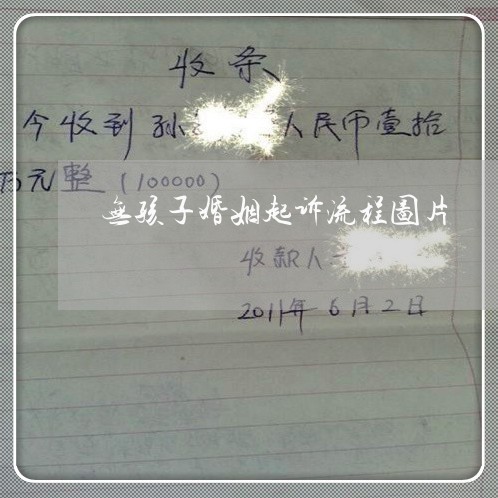 收条
今收到孙 人民币壹拾
万元整（100000）
無孩子婚姻起诉流程圖片
收款人
2011年6月2日